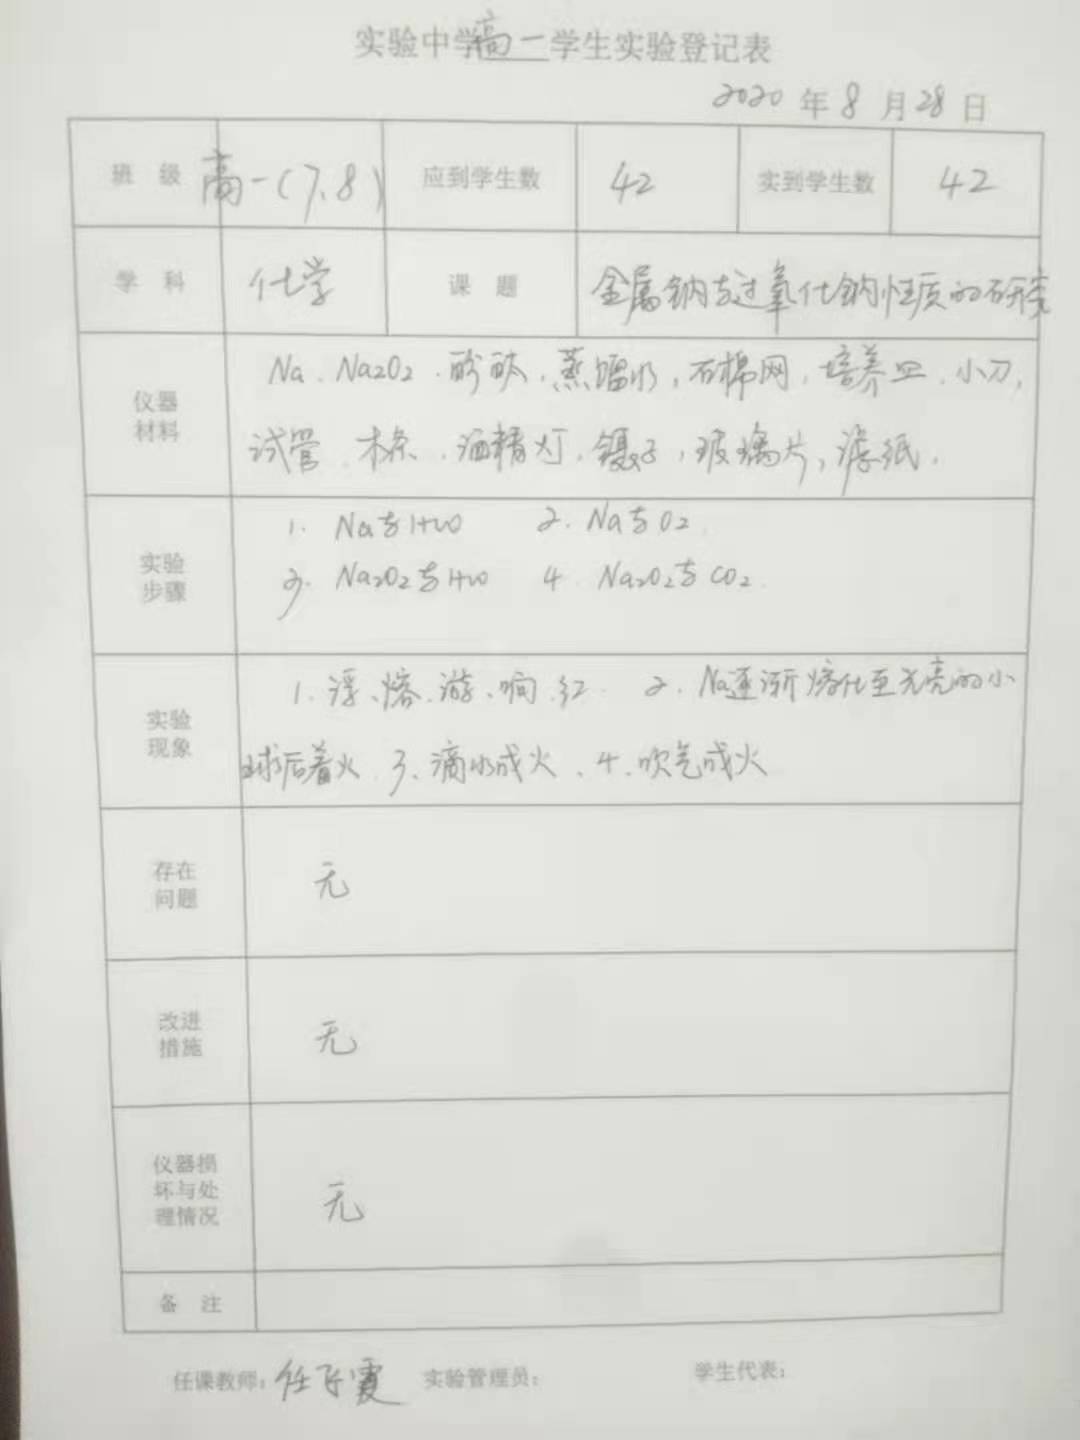 实验中学高一学生实验登记表
2020 年 8 月 28 日
班 级 高一(7、8) 应到学生数 42 实到学生数 42
学 科 化学 课 题 金属钠与过氧化钠性质的研究
仪器
材料
Na、Na2O2、酚酞、蒸馏水,石棉网,培养皿、小刀,
试管、木条、酒精灯,镊子,玻璃片,滤纸.
实验
步骤
1. Na与H2O 2. Na与O2.
3. Na2O2与H2O 4. Na2O2与CO2.
实验
现象
1. 浮、熔、游、响、红. 2. Na逐渐熔化至光亮的小
球后着火. 3、滴水成火、4、吹气成火
存在
问题
无
改进
措施
无
仪器损
坏与处
理情况
无
备 注
任课教师:任飞霞 实验管理员: 学生代表: